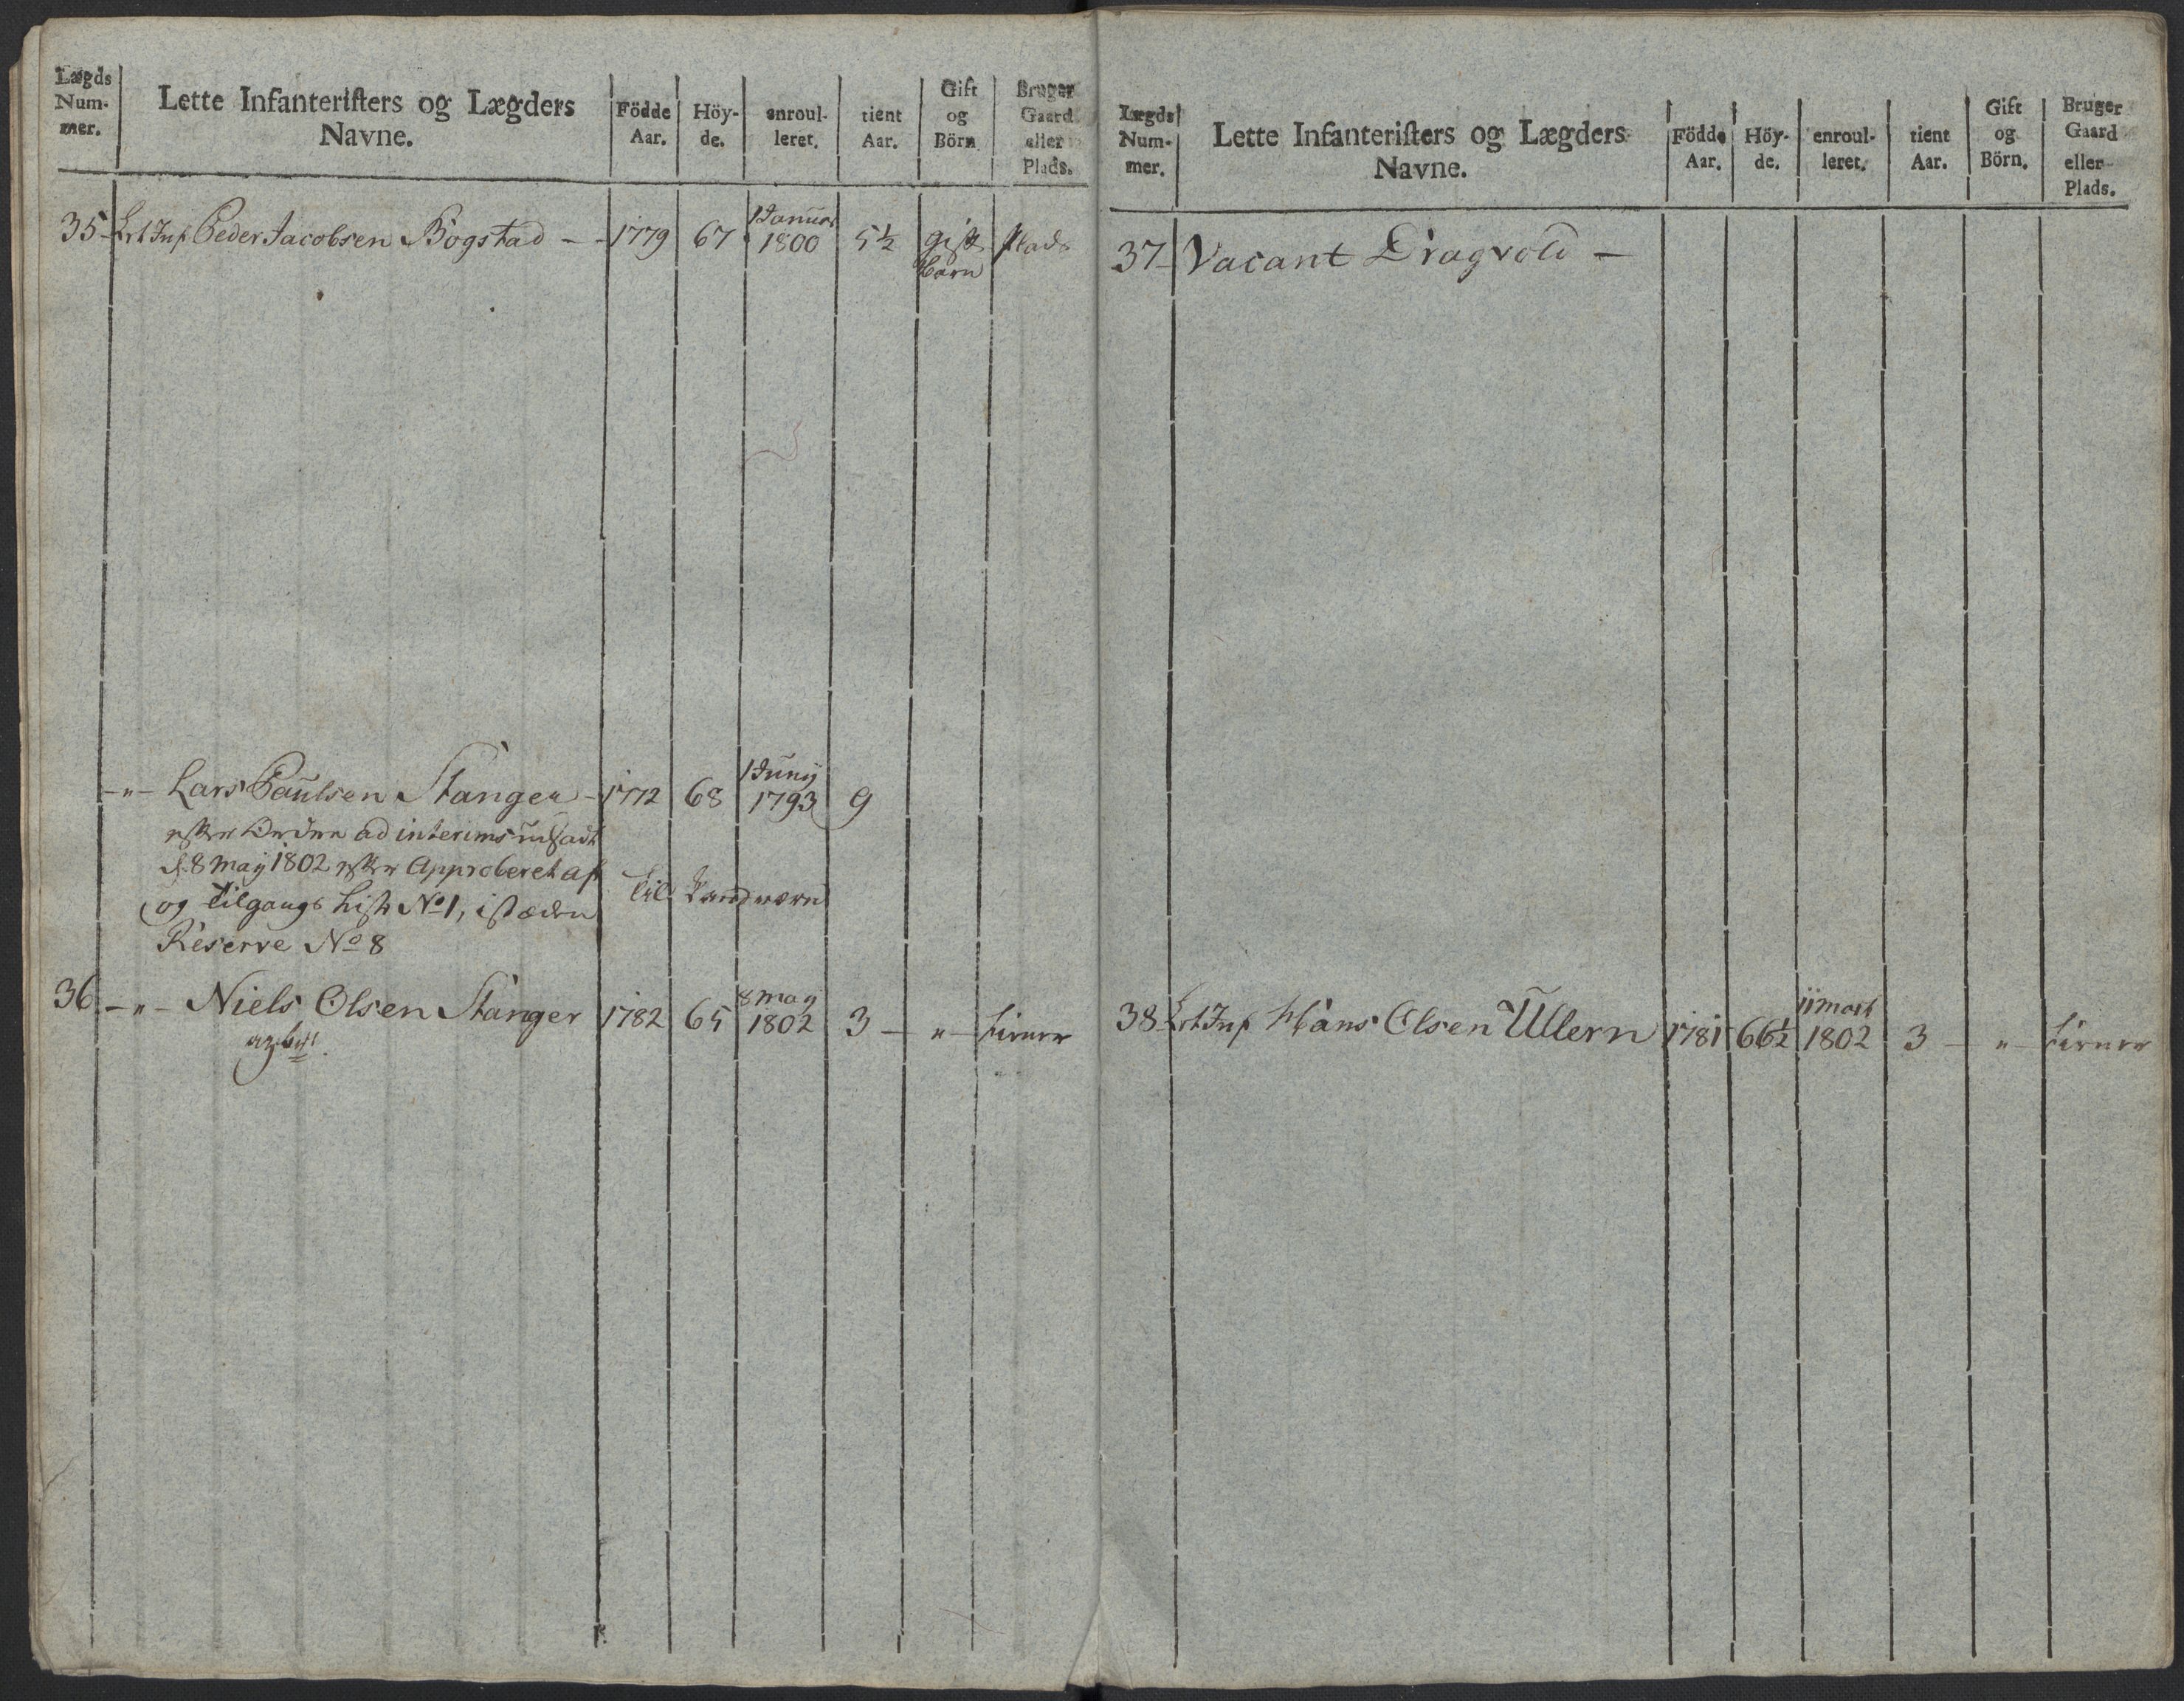 Lægds Num- mer.
Lette Infanterister og Lægders Navne.
Födde Aar.
Höy- de.
enroul- leret.
tient Aar.
Gift og Börn
Bruger Gaard eller Plads.
35 - Let Inf Peder Jacobsen Bogstad - - 1779 67 1 Januar 1800 5 1/2 gift Barn Plads
- " - Lars Paulsen Stangen - 1772 68 1 Juny 1793 9
efter Ordre ad interims udsadt
d. 8 May 1802 efter Approberet af
og tilgangs Liste No 1, istæden
Reserve No 8
til Landværn
36 - " - Niels Olsen Stanger 1782 65 8 May 1802 3 - " -
Lægds Num- mer.
Lette Infanterister og Lægders Navne.
Födde Aar.
Höy- de.
enroul- leret.
tient Aar.
Gift og Börn.
Bruger Gaard eller Plads.
37 - Vacant Dragvold -
38 - Let Inf Hans Olsen Ullern 1781 66 1/2 11 Mart 1802 3 - " -